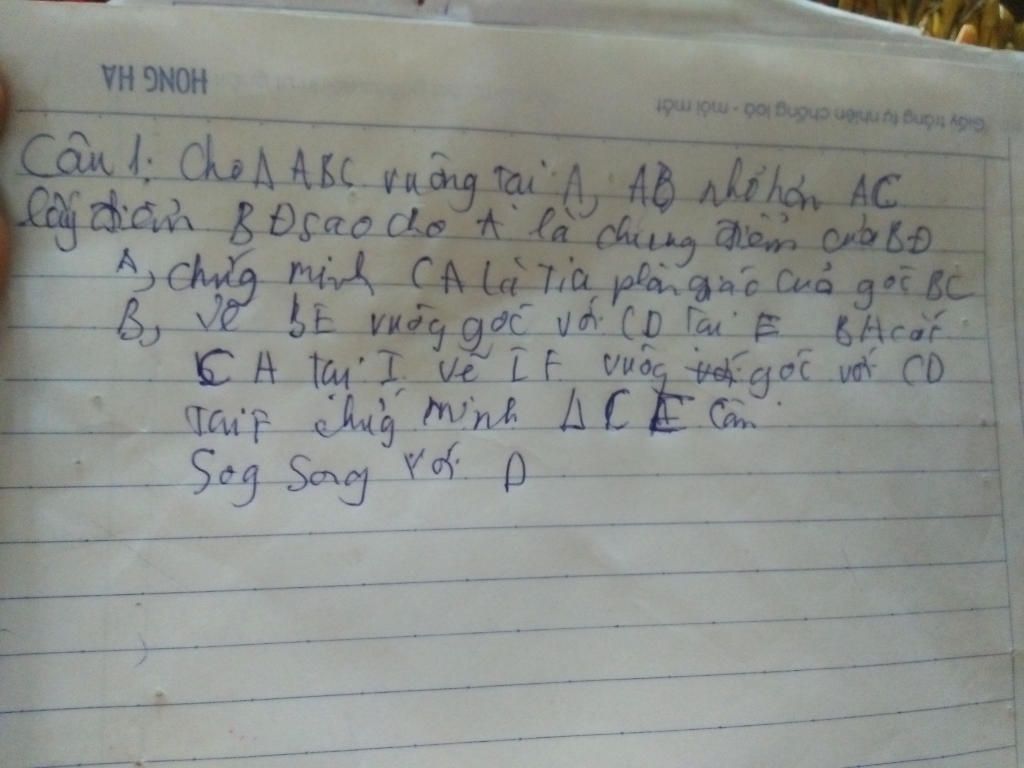 HONG HA
Giấy trắng tự nhiên chống loá - mỏi mắt
Câu 1: Cho Δ ABC vuông tại A, AB nhỏ hơn AC
lấy điểm B Đ sao cho A là chung điểm của BĐ
A, chứng minh CA là Tia phân giác của góc BC
B, Vẽ BE vuông góc với CD Tại E BA cắt
CA Tại I vẽ IF vuông góc với CD
Tại F chứng minh Δ CE cân
Sog Song với D